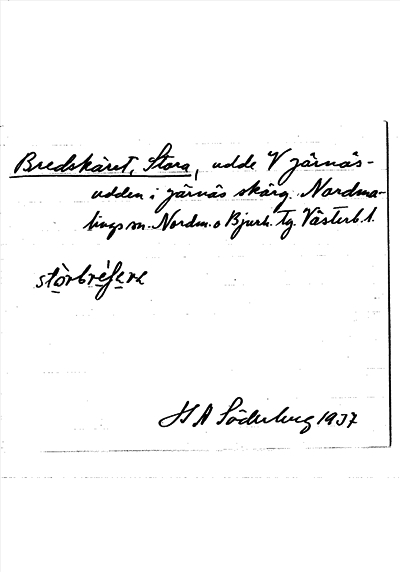 Bredskäret, Stora, udde V Järnäs-
udden i Järnäs skärg. Nordma-
lings sn. Nordm. o Bjurh. tg. Västerb. l.
H A Söderberg 1937